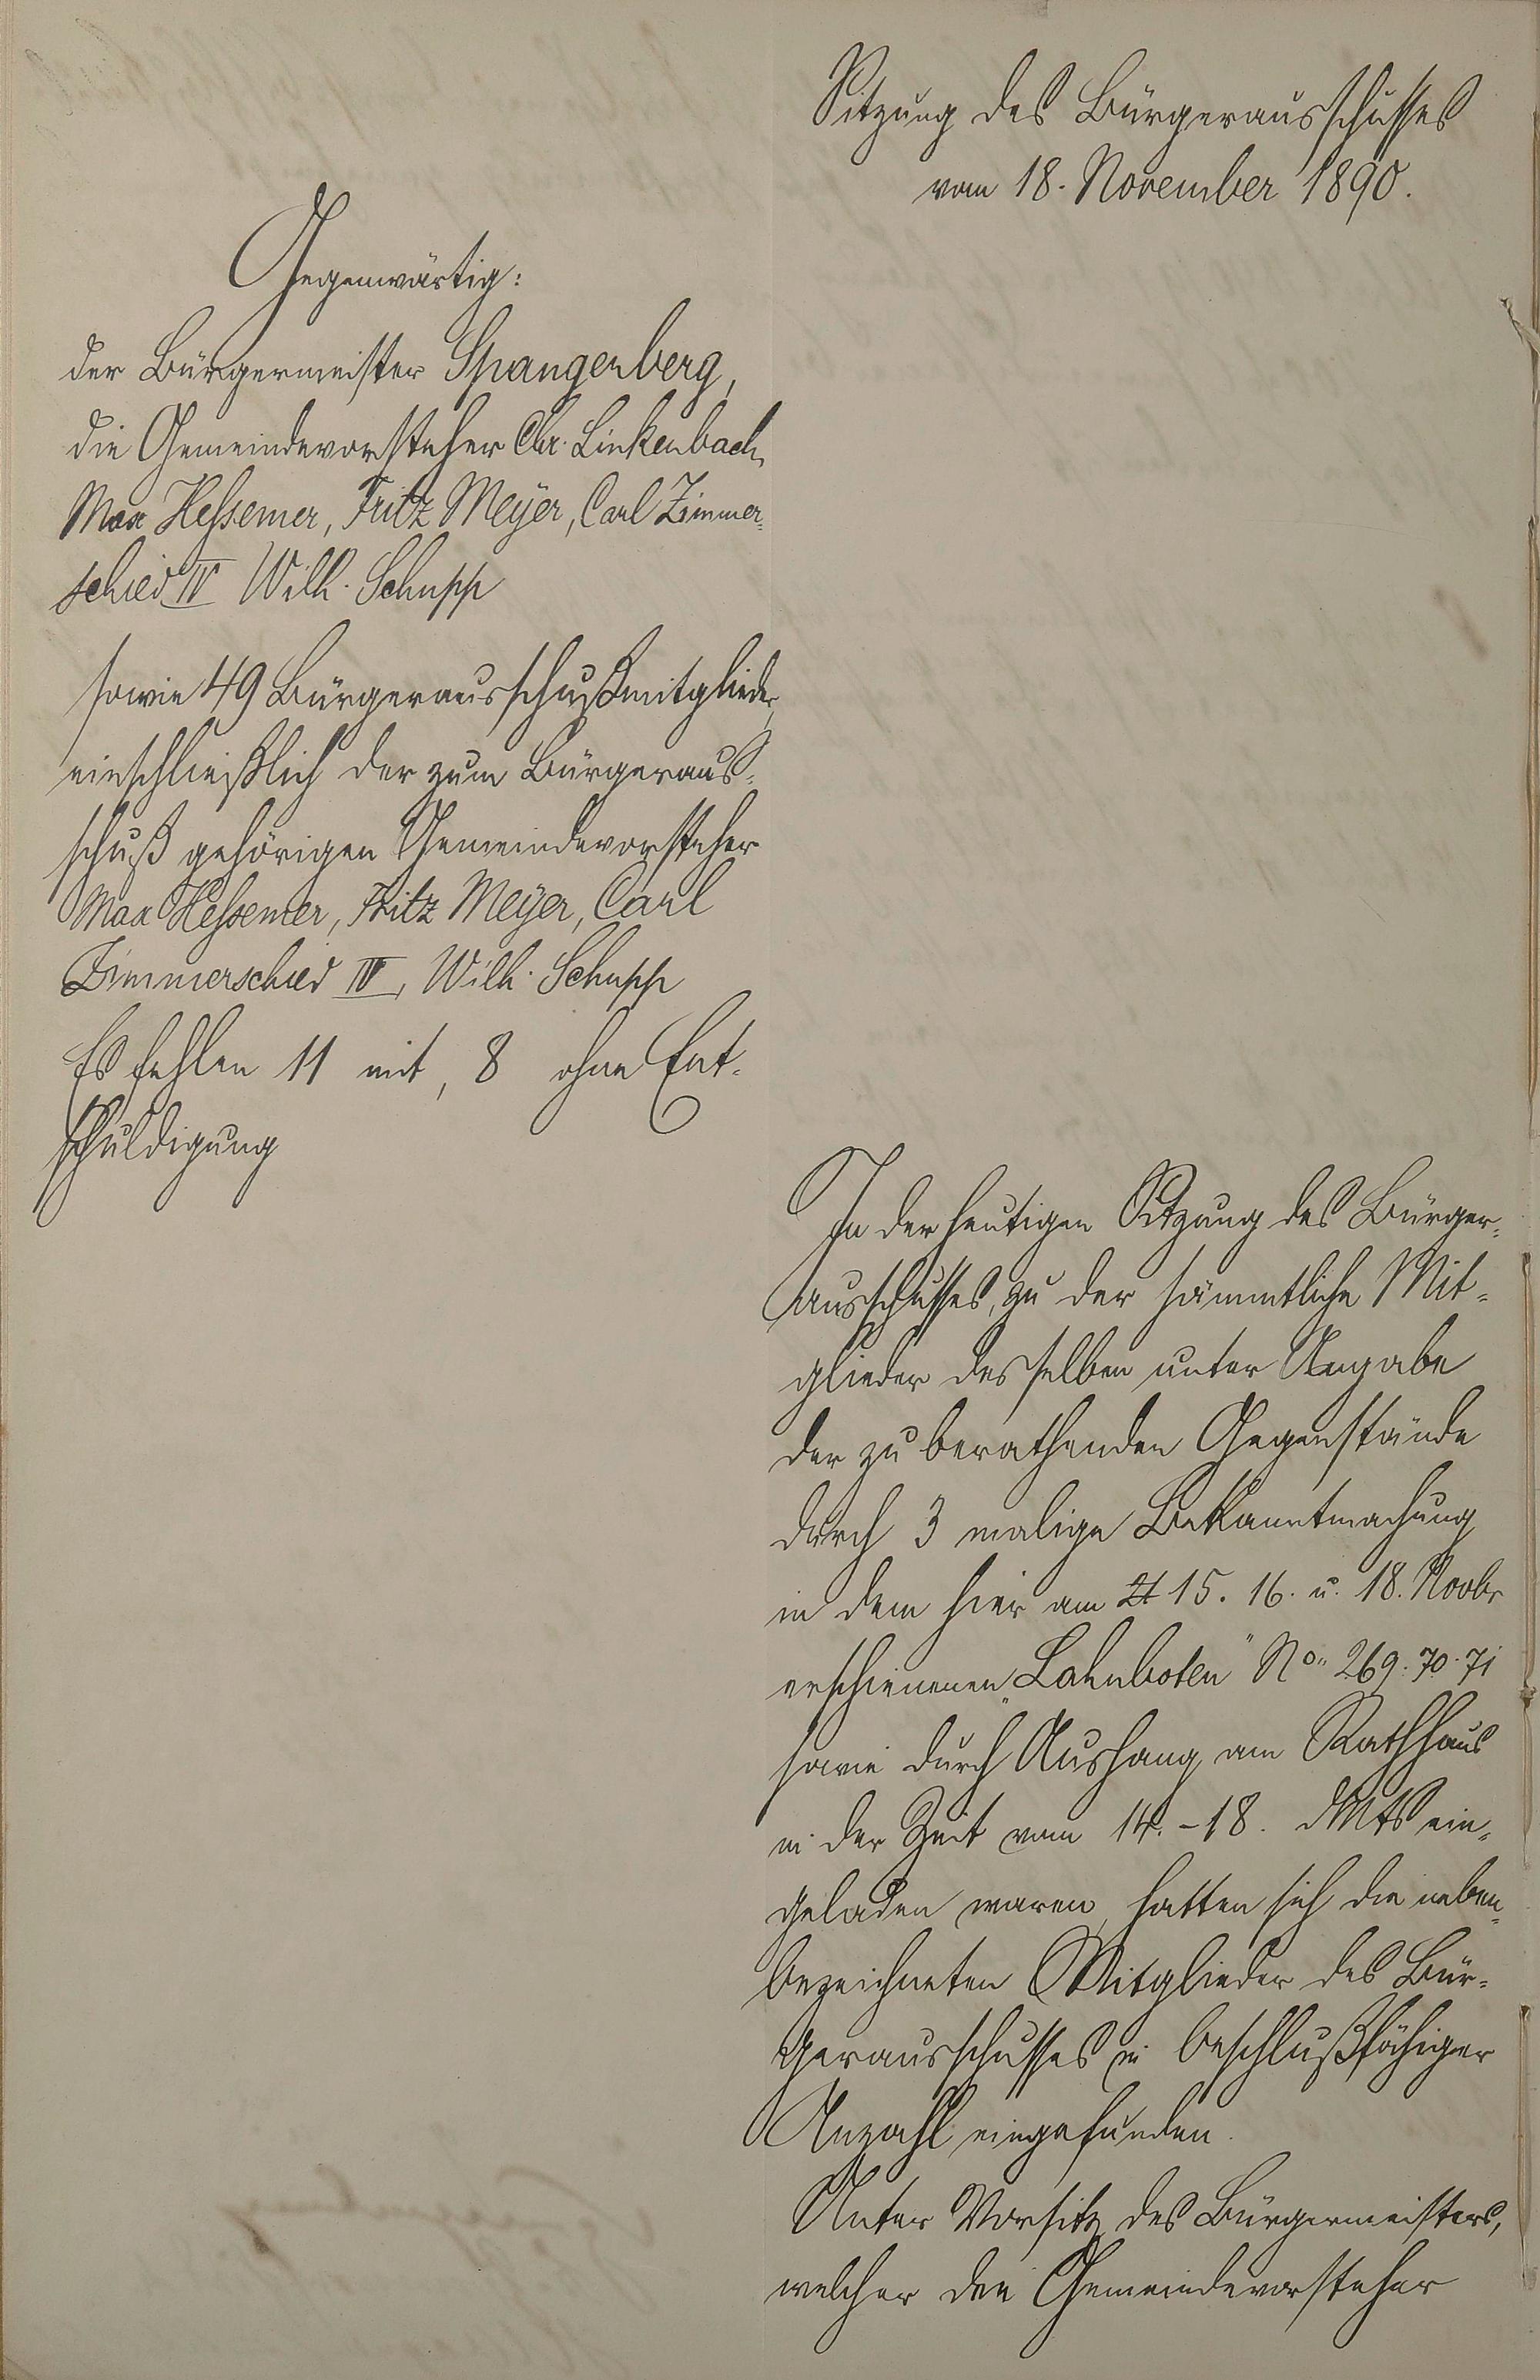 Sitzung des Bürgerausschusses
vom 18. November 1890.
Gegenwärtig:
der Bürgermeister Spangenberg,
die Gemeindevorsteher Chr. Linkenbach,
Max Hessemer, Fritz Meÿer, Carl Zimmer-
schied IV Wilh. Schupp
sowie 49 Bürgerausschußmitglieder,
einschließlich der zum Bürgeraus-
schuß gehörigen Gemeindevorsteher
Max Hessemer, Fritz Meÿer, Carl
Zimmerschied IV, Wilh. Schupp
Es fehlen 11 mit, 8 ohne Ent-
schuldigung
In der heutigen Sitzung des Bürger-
ausschusses, zu der sämmtliche Mit-
glieder desselben unter Angabe
der zu berathenden Gegenstände
durch 3 malige Bekanntmachung
in dem hier am 15. 16. u. 18. Novbr
erschienenen „Lahnboten" No. 269. 70. 71
sowie durch Aushang am Rathhaus
in der Zeit vom 14. - 18. dMts ein-
geladen waren, hatten sich die neben-
bezeichneten Mitglieder des Bür-
gerausschusses in beschlußfähiger
Anzahl eingefunden.
Unter Vorsitz des Bürgermeisters,
welcher den Gemeindevorsteher